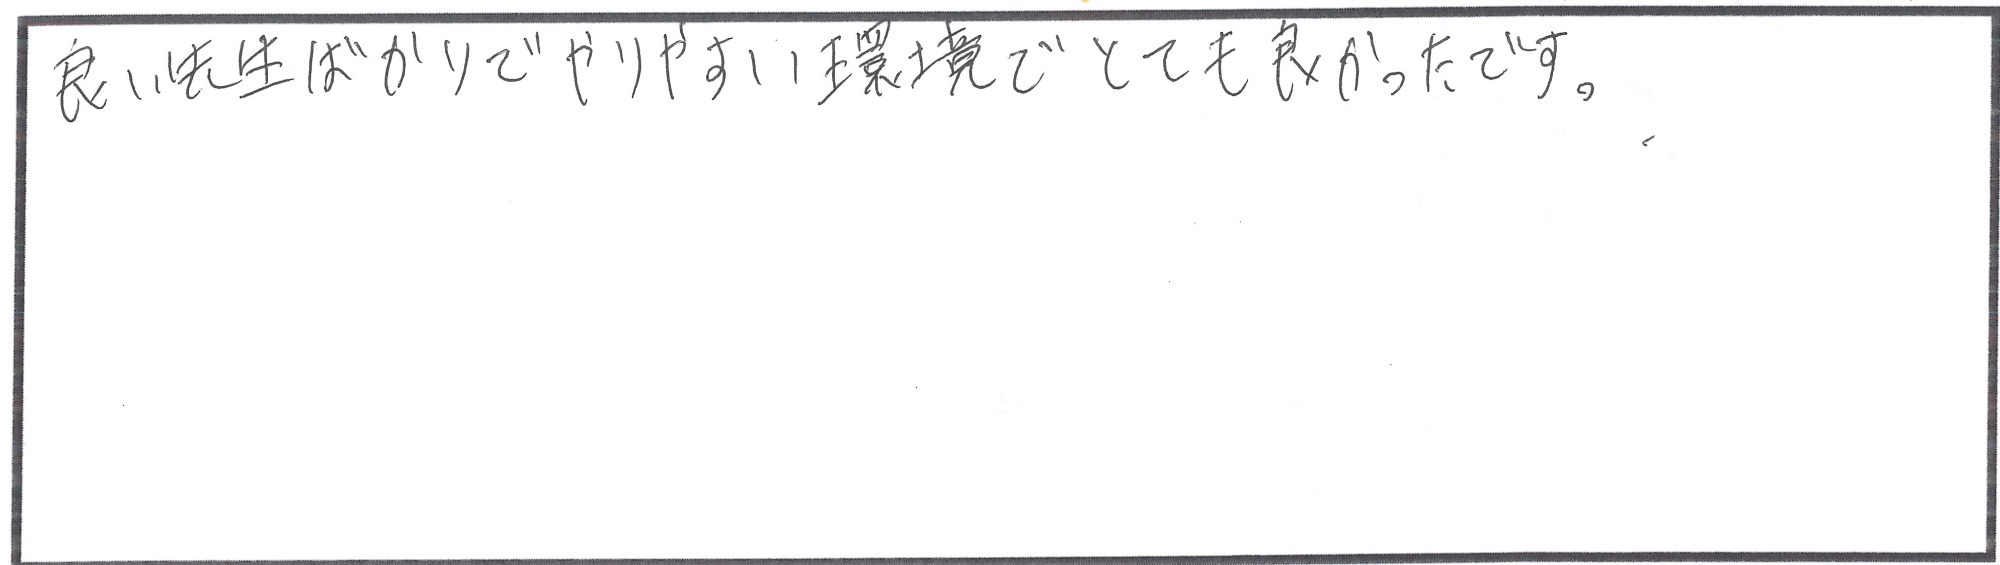 良い先生ばかりでやりやすい環境でとても良かったです。